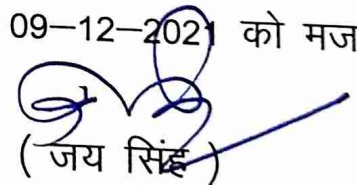 09–12–2021 को मज
( जय सिंह )